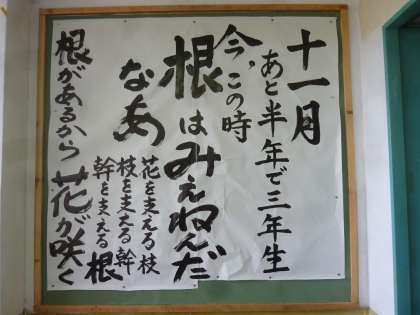 十一月
あと半年で三年生
今、この時
根はみえねんだ
なあ
花を支える枝
枝を支える幹
幹を支える根
根があるから花が咲く